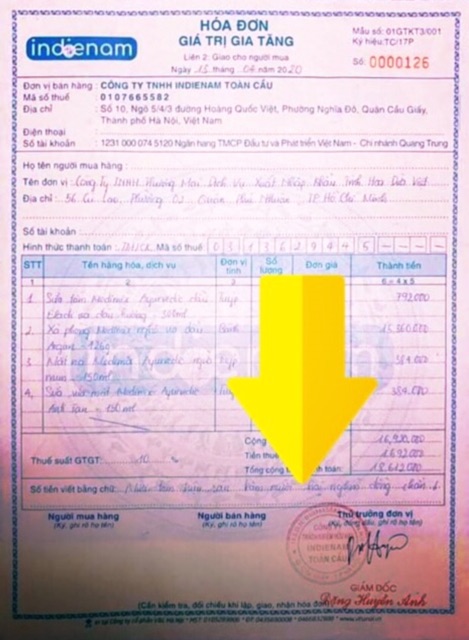 HÓA ĐƠN
GIÁ TRỊ GIA TĂNG
Liên 2: Giao cho người mua
Ngày 15 tháng 04 năm 2020
Mẫu số: 01GTKT3/001
Ký hiệu: TC/17P
Số: 0000126
indienam
Đơn vị bán hàng : CÔNG TY TNHH INDIENAM TOÀN CẦU
Mã số thuế : 0107665582
Địa chỉ : Số 10, Ngõ 5/4/3 đường Hoàng Quốc Việt, Phường Nghĩa Đô, Quận Cầu Giấy,
Thành phố Hà Nội, Việt Nam
Điện thoại :
Số tài khoản : 1231 000 074 5120 Ngân hàng TMCP Đầu tư và Phát triển Việt Nam - Chi nhánh Quang Trung
Họ tên người mua hàng :
Tên đơn vị : Công ty TNHH Thương Mại Dịch Vụ Xuất Nhập Khẩu Tinh Hoa
Địa chỉ : 56 Cù Lao, Phường 02, Quận Phú Nhuận, TP Hồ Chí Minh
Số tài khoản :
Hình thức thanh toán : TM/CK Mã số thuế 0 3 1 3 6 2 9 4 4 5
STT Tên hàng hóa, dịch vụ Đơn vị tính Số lượng Đơn giá Thành tiền
1 2 3 6 = 4 x 5
1 Sữa tắm Medimix Ayurvedic dầu 792.000
300ml
2. Xà phòng Medimix nghệ và dầu Bánh
Argan - 125g
3 Mặt nạ Medimix Ayurvedic
- 150ml
4, Sữa rửa mặt Medimix Ayurvedic 384.000
- 150 ml
Cộng 16,920,000
Thuế suất GTGT: 10 % Tiền thu 1,692,000
Tổng cộng toán: 18.612.000
Số tiền viết bằng chữ: Mười tám triệu sáu trăm mười hai nghìn đồng chẵn
Người mua hàng Người bán hàng Thủ trưởng đơn vị
(Ký, ghi rõ họ tên) (Ký, ghi rõ họ tên) (Ký, đóng dấu, ghi rõ họ tên)
INDIENAM
TOÀN CẦU
GIÁM ĐỐC
Đặng Huyền Anh
(Cần kiểm tra, đối chiếu khi lập, giao, nhận hóa đơn)